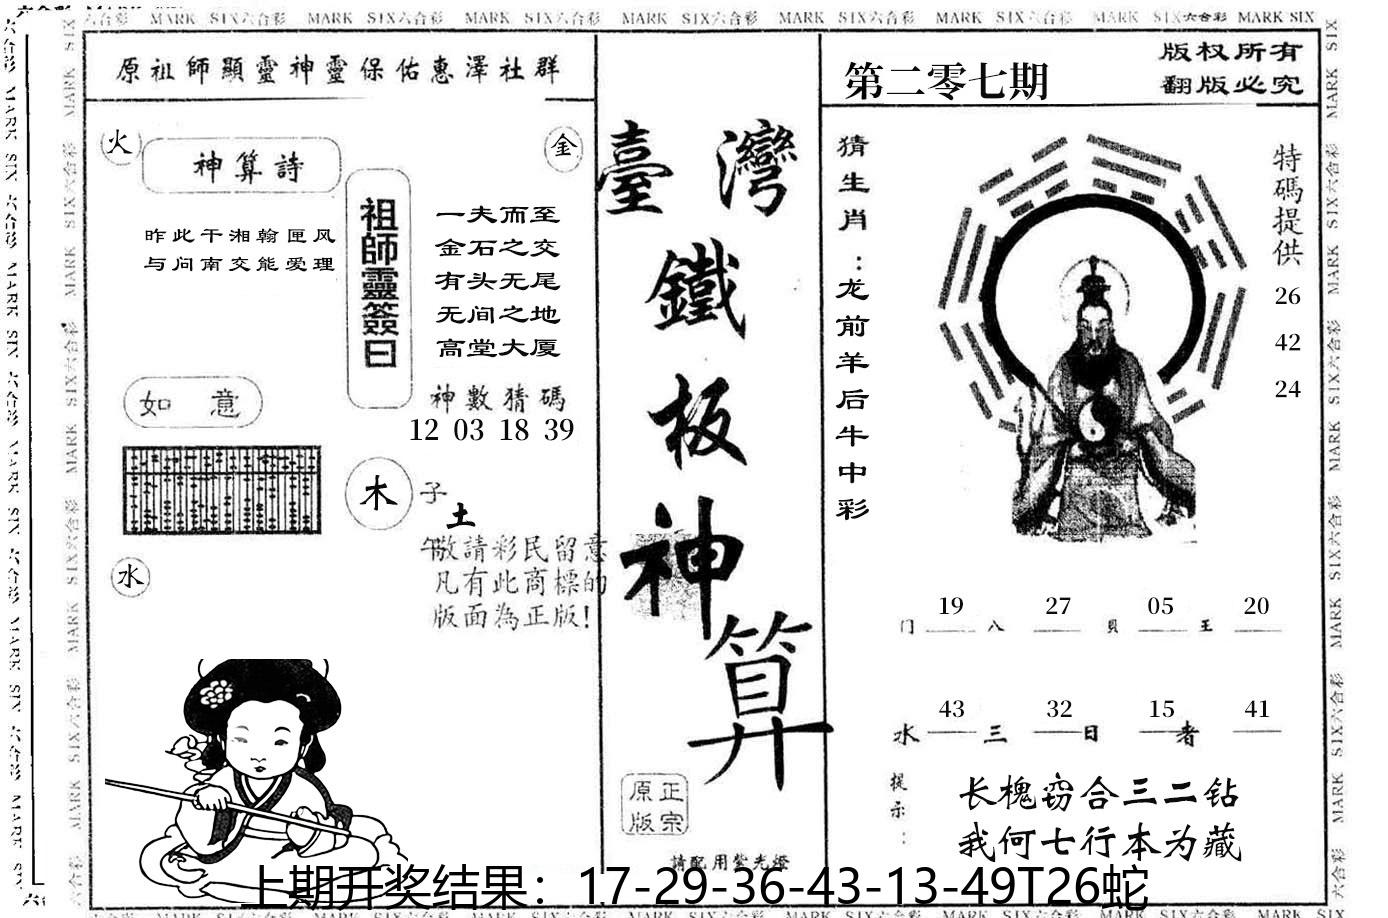 六合彩 MARK SIX六合彩 MARK SIX六合彩 MARK SIX六合彩 MARK SIX六合彩 MARK SIX六合彩 MARK SIX六合彩 MARK SIX六合彩 MARK SIX
原祖師顯靈神靈保佑惠澤社群
火
神算詩
金
昨此干湘翰匣风
与问南交能爱理
祖師靈簽曰
一夫而至
金石之交
有头无尾
无间之地
高堂大厦
如 意
神數猜碼
12 03 18 39
木
子
土
午
水
敬請彩民留意
凡有此商標的
版面為正版!
臺灣
鐵
板
神
算
正宗
原版
請配用紫光燈
第二零七期
版权所有
翻版必究
猜生肖:龙前羊后牛中彩
特碼提供
26
42
24
19 27 05 20
门 八 貝 王
43 32 15 41
水 三 日 者
提示:
长槐窃合三二钻
我何七行本为藏
上期开奖结果：17-29-36-43-13-49T26蛇